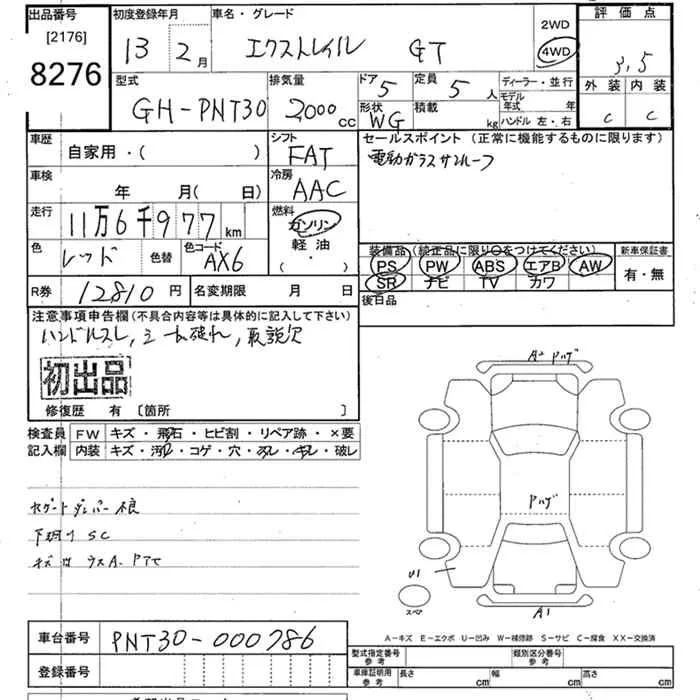 出品番号 初度登録年月 車名・グレード 2WD 評価点
[2176] 13 2月 エクストレイル GT 4WD 3.5
8276 型式 排気量 ドア 5 定員 5人 ディーラー・並行 外装 内装
GH-PNT30 2,000cc 形状 WG 積載 kg モデル年式 年 C C
ハンドル 左・右
車歴 シフト セールスポイント (正常に機能するものに限ります)
自家用・( ) FAT 電動ガラスサンルーフ
車検 冷房
年 月( 日) AAC
走行 燃料
11万6千977km ガソリン
色 色替 色コード 軽油 装備品 (純正品に限り○をつけてください) 新車保証書
レッド AX6 ( ・ ) PS PW ABS エアB AW 有・無
SR ナビ TV カワ
R券 12810円 名変期限 月 日 後日品
注意事項申告欄(不具合内容等は具体的に記入して下さい)
ハンドルスレ,シート破れ,取説欠
初出品
修復歴 有 [箇所 ]
A2 Pハゲ
検査員 FW キズ・飛石・ヒビ割・リペア跡・×要
記入欄 内装 キズ・汚レ・コゲ・穴・スレ・キレ・破レ
Pハゲ
ダンパー不良
下廻り SC
キズ
U1
スペア
A1
A-キズ E-エクボ U-凹み W-補修跡 S-サビ C-腐食 XX-交換済
車台番号 PNT30-000786
型式指定番号 参考 類別区分番号 参考
登録番号
車庫証明用 参考 長さ cm 幅 cm 高さ cm